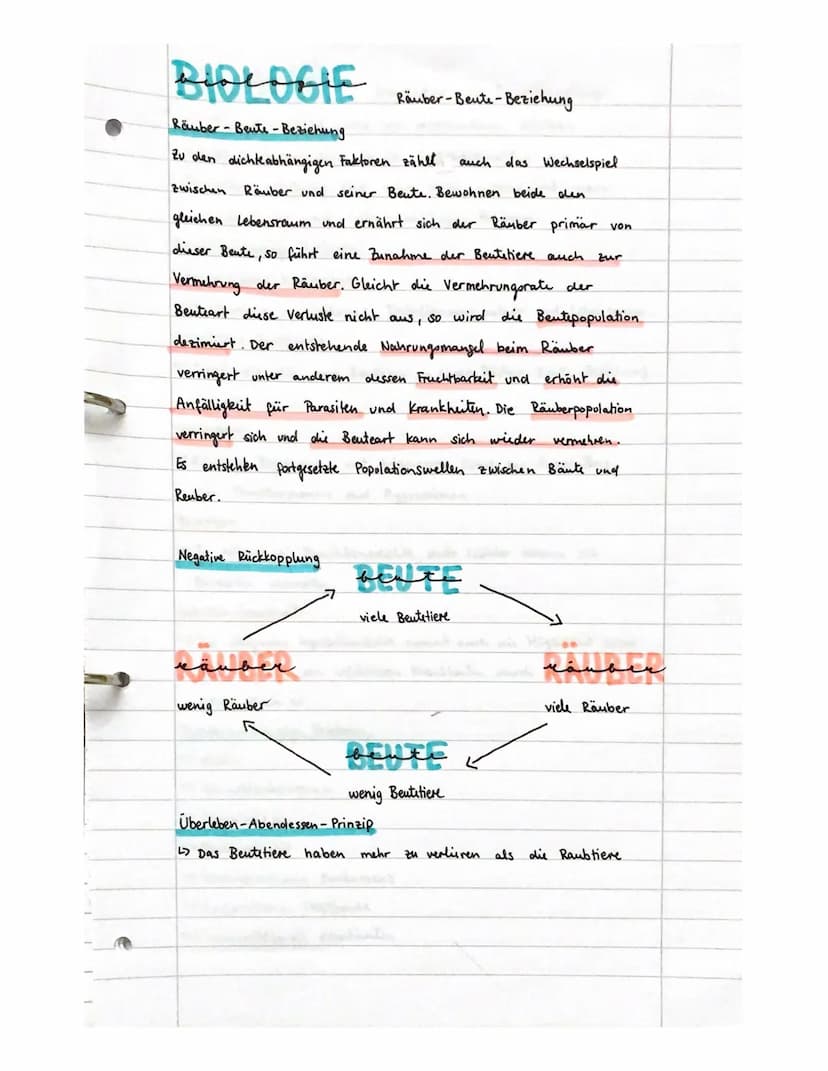 BIOLOGIE
biologie
Räuber-Beute-Beziehung
Räuber-Beute-Beziehung
Zu den dichteabhängigen Faktoren zählt auch das Wechselspiel
zwischen Räuber und seiner Beute. Bewohnen beide den
gleichen Lebensraum und ernährt sich der Räuber primär von
dieser Beute, so führt eine Zunahme der Beutetiere auch zur
Vermehrung der Räuber. Gleicht die Vermehrungsrate der
Beuteart diese Verluste nicht aus, so wird die Beutepopulation
dezimiert. Der entstehende Nahrungsmangel beim Räuber
verringert unter anderem dessen Fruchtbarkeit und erhöht die
Anfälligkeit für Parasiten und Krankheiten. Die Räuberpopolation
verringert sich und die Beuteart kann sich wieder vermehren.
Es entstehen fortgesetzte Populationswellen zwischen Bäute und
Reuber.
Negative Rückkopplung
BEUTE
beute
viele Beutetiere
RÄUBER
räuber
RÄUBER
räuber
wenig Räuber
viele Räuber
BEUTE
beute
wenig Beutetiere
Überleben-Abendessen-Prinzip
↳ Das Beutetiere haben mehr zu verlieren als die Raubtiere